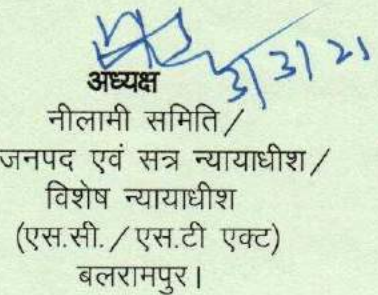 3/3/21
अध्यक्ष
नीलामी समिति/
जनपद एवं सत्र न्यायाधीश/
विशेष न्यायाधीश
(एस.सी./एस.टी एक्ट)
बलरामपुर।